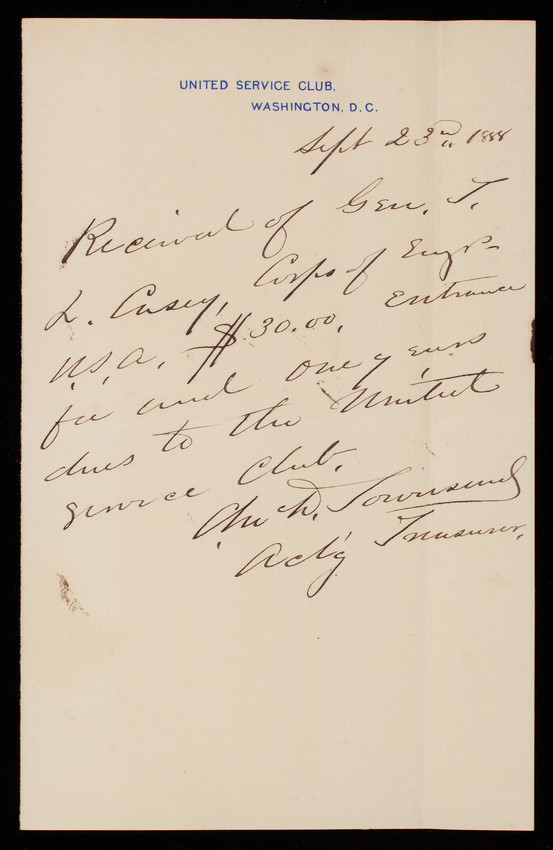 UNITED SERVICE CLUB,
WASHINGTON, D.C.
Sept 23rd 1888
Received of Gen. T.
L. Casey, Corps of Engrs
U.S.A. $30.00, Entrance
fee and one years
dues to the United
Service Club.
D. Townsend
Act'g Treasurer.